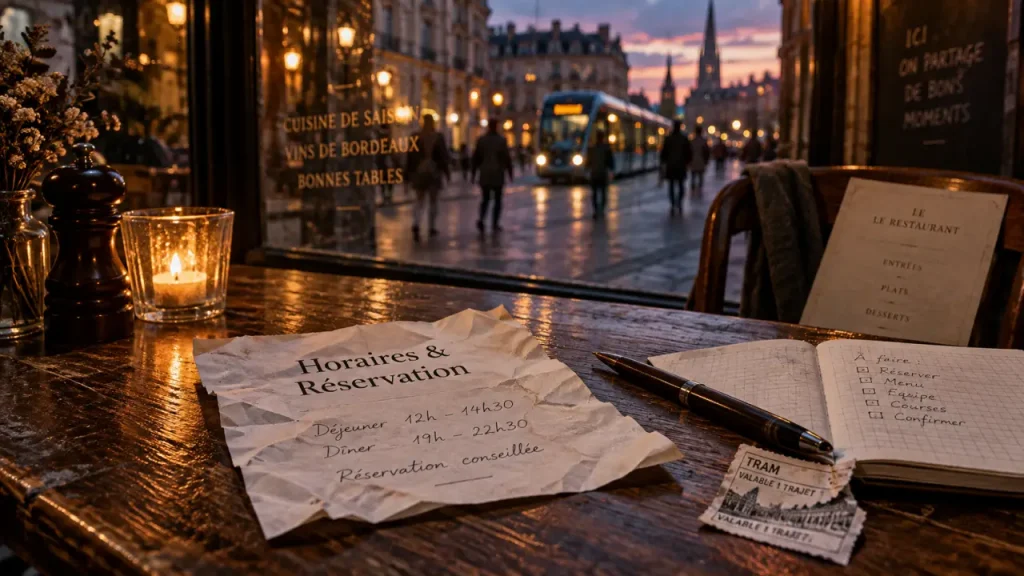 CUISINE DE SAISON
VINS DE BORDEAUX
BONNES TABLES
ICI
ON PARTAGE
DE BONS
MOMENTS
LE
LE RESTAURANT
ENTRÉES
PLATS
DESSERTS
Horaires &
Réservation
Déjeuner 12h – 14h30
Dîner 19h – 22h30
Réservation conseillée
À faire :
Réserver
Menu
Équipe
Courses
Confirmer
TRAM
VALABLE 1 TRAJET
VALABLE 1 TRAJET